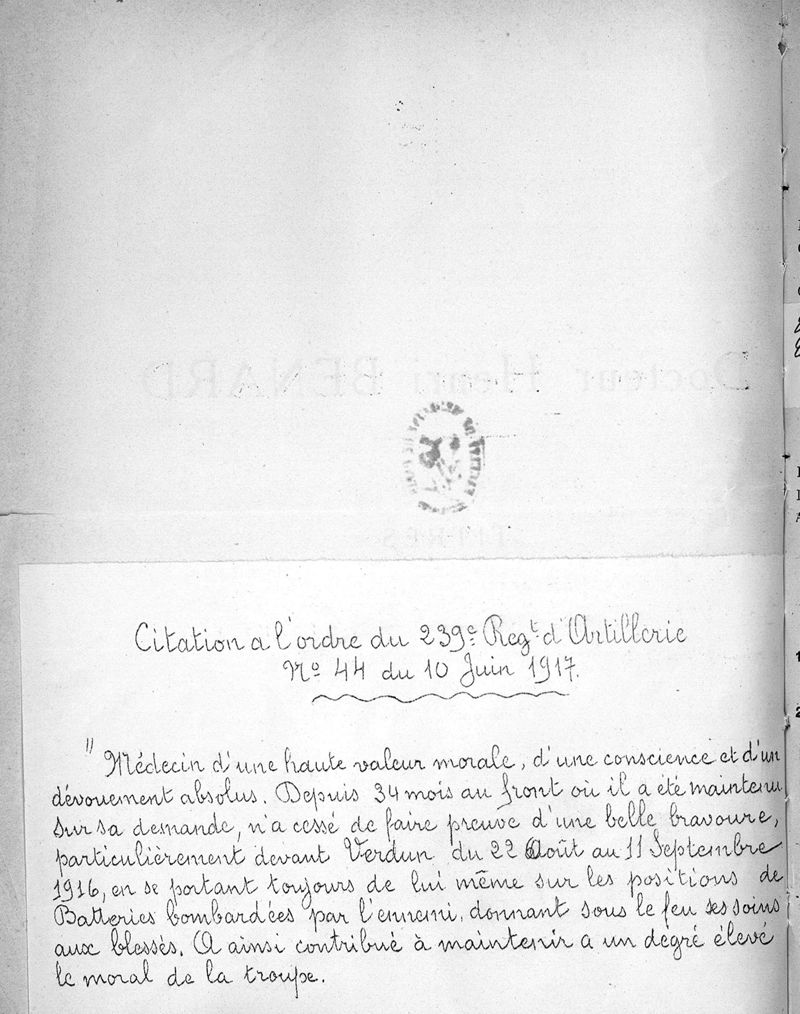 Docteur Henri BENARD
TITRES
Citation a l'ordre du 239e Regt d'Artillerie
No 44 du 10 Juin 1917.
" Médecin d'une haute valeur morale, d'une conscience et d'un
dévouement absolus. Depuis 34 mois au front où il a été maintenu
sur sa demande, n'a cessé de faire preuve d'une belle bravoure,
particulièrement devant Verdun du 22 Août au 11 Septembre
1916, en se portant toujours de lui même sur les positions de
Batteries bombardées par l'ennemi, donnant sous le feu ses soins
aux blessés. A ainsi contribué à maintenir a un degré élevé
le moral de la troupe.